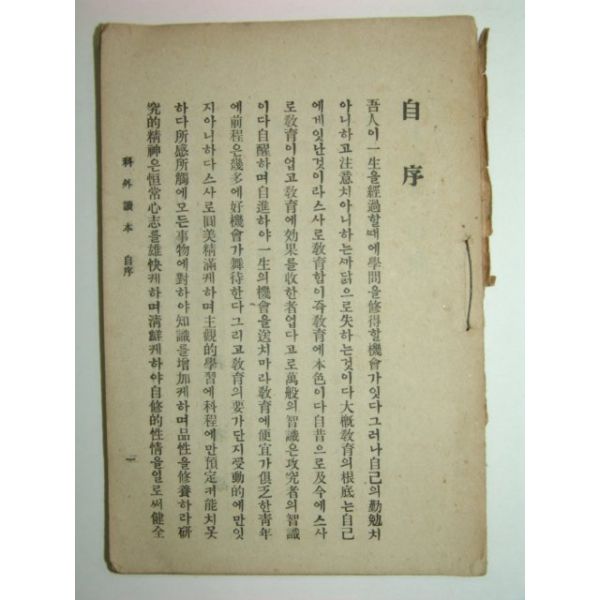 自序
吾人이一生을經過할때에學問을修得할機會가잇다그러나自己의勤勉치
아니하고注意치아니하는까닭으로失하는것이다大槪敎育의根底는自己
에게잇난것이라스사로敎育함이즉敎育에本色이다自昔으로及今에스사
로敎育이업고敎育에効果를收한者업다고로萬般의智識은攻究者의智識
이다自醒하며自進하야一生의機會을送치마라敎育에便宜가俱乏한靑年
에前程은幾多에好機會가舞待한다그리고敎育의要가단지受動的에만잇
지아니하다스사로圓美精滿케하며主觀的學習에科程에만預定커能치못
하다所感所觸에모든事物에對하야知識를增加케하며品性을修養하라硏
究的精神은恒常心志를雄快케하며淸鮮케하야自修的性情을일로써健全
科外讀本 自序
一